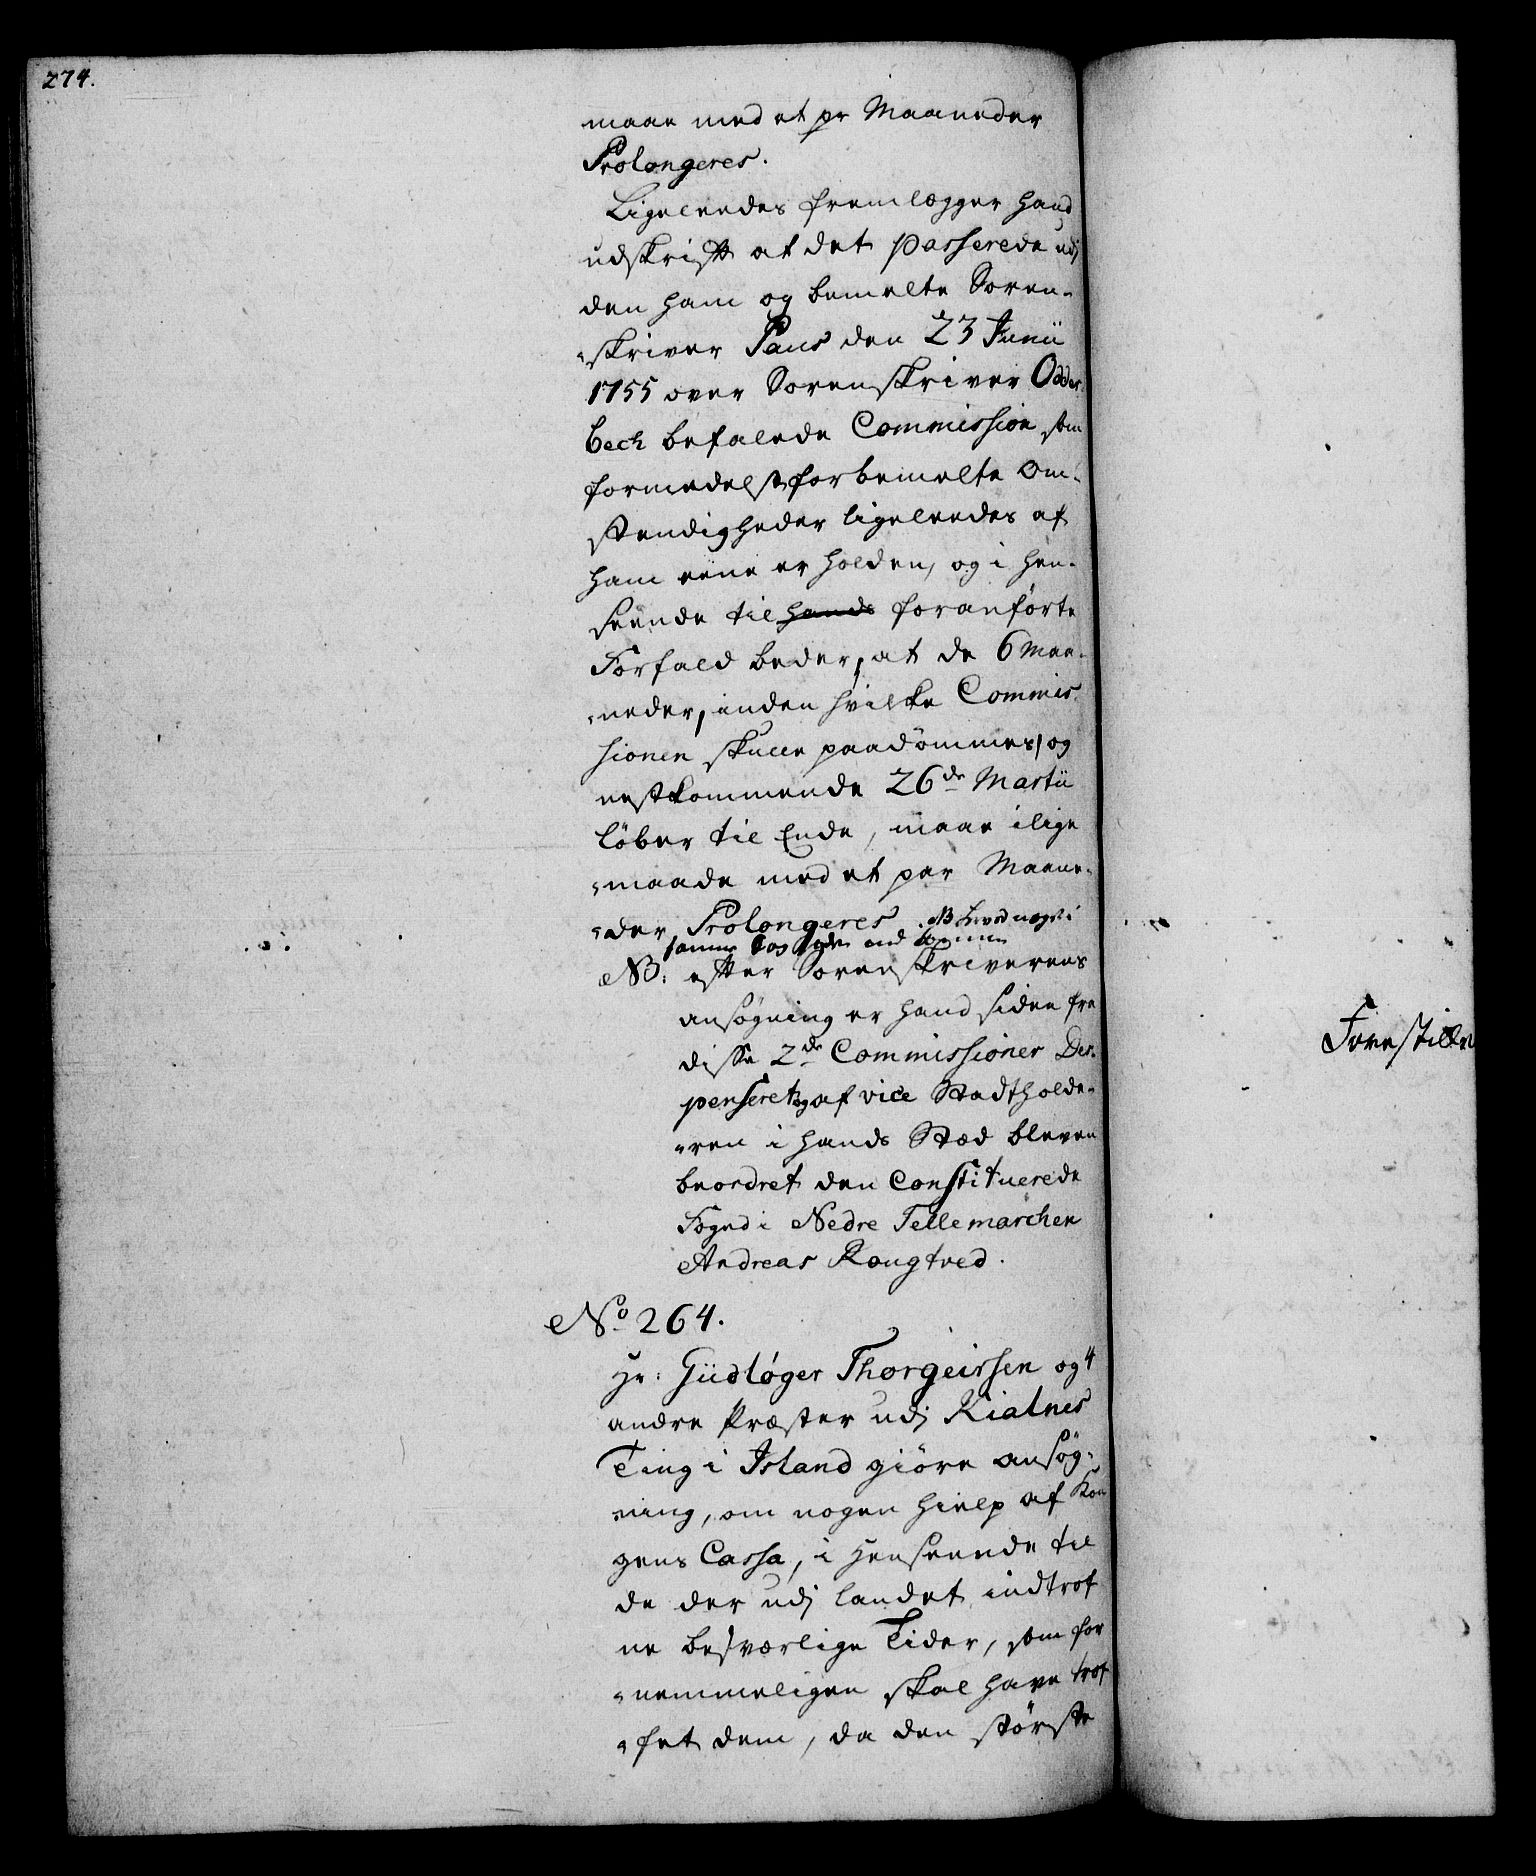 274.
maae med et pr Maaneder
Prolongeres.
Ligeleedes fremlegger hand
udskrift af det passerede udj
den ham og bemelte Soren-
skriver Paus den 23 Junii
1755 over Sorenskriver Odder-
bech befalede Commission som
formedelst forbemelte Om-
stendigheder ligeleedes af
ham eene er holden, og i hen-
seende til hands foranførte
Forfald beder, at de 6 Maa-
neder, inden hvilke Commis
sionen skulle paadømmes, og
nestkommende 26de Martii
løber til Ende, maae i lige
maade med et par Maane-
der Prolongeres.
NB: efter Sorenskriverens
ansøgning er hand siden fra
disse 2de Commissioner Dis-
penseret, og af vice Stadtholde-
ren i hands Stæd bleven
beordret den Constituerede
Foged i Nedre Tellemarchen
Andreas Rougtved.
No 264.
Hr: Güdløger Thorgeirssen og 4
andre Præster udj Kialnes
Ting i Island giøre ansøg-
ning, om nogen hielp af Kon
gens Cassa, i henseende til
de der udj landet indtrof
ne besværlige Tider, som for
nemmeligen skal have trof
fet dem, da den største
Forestille